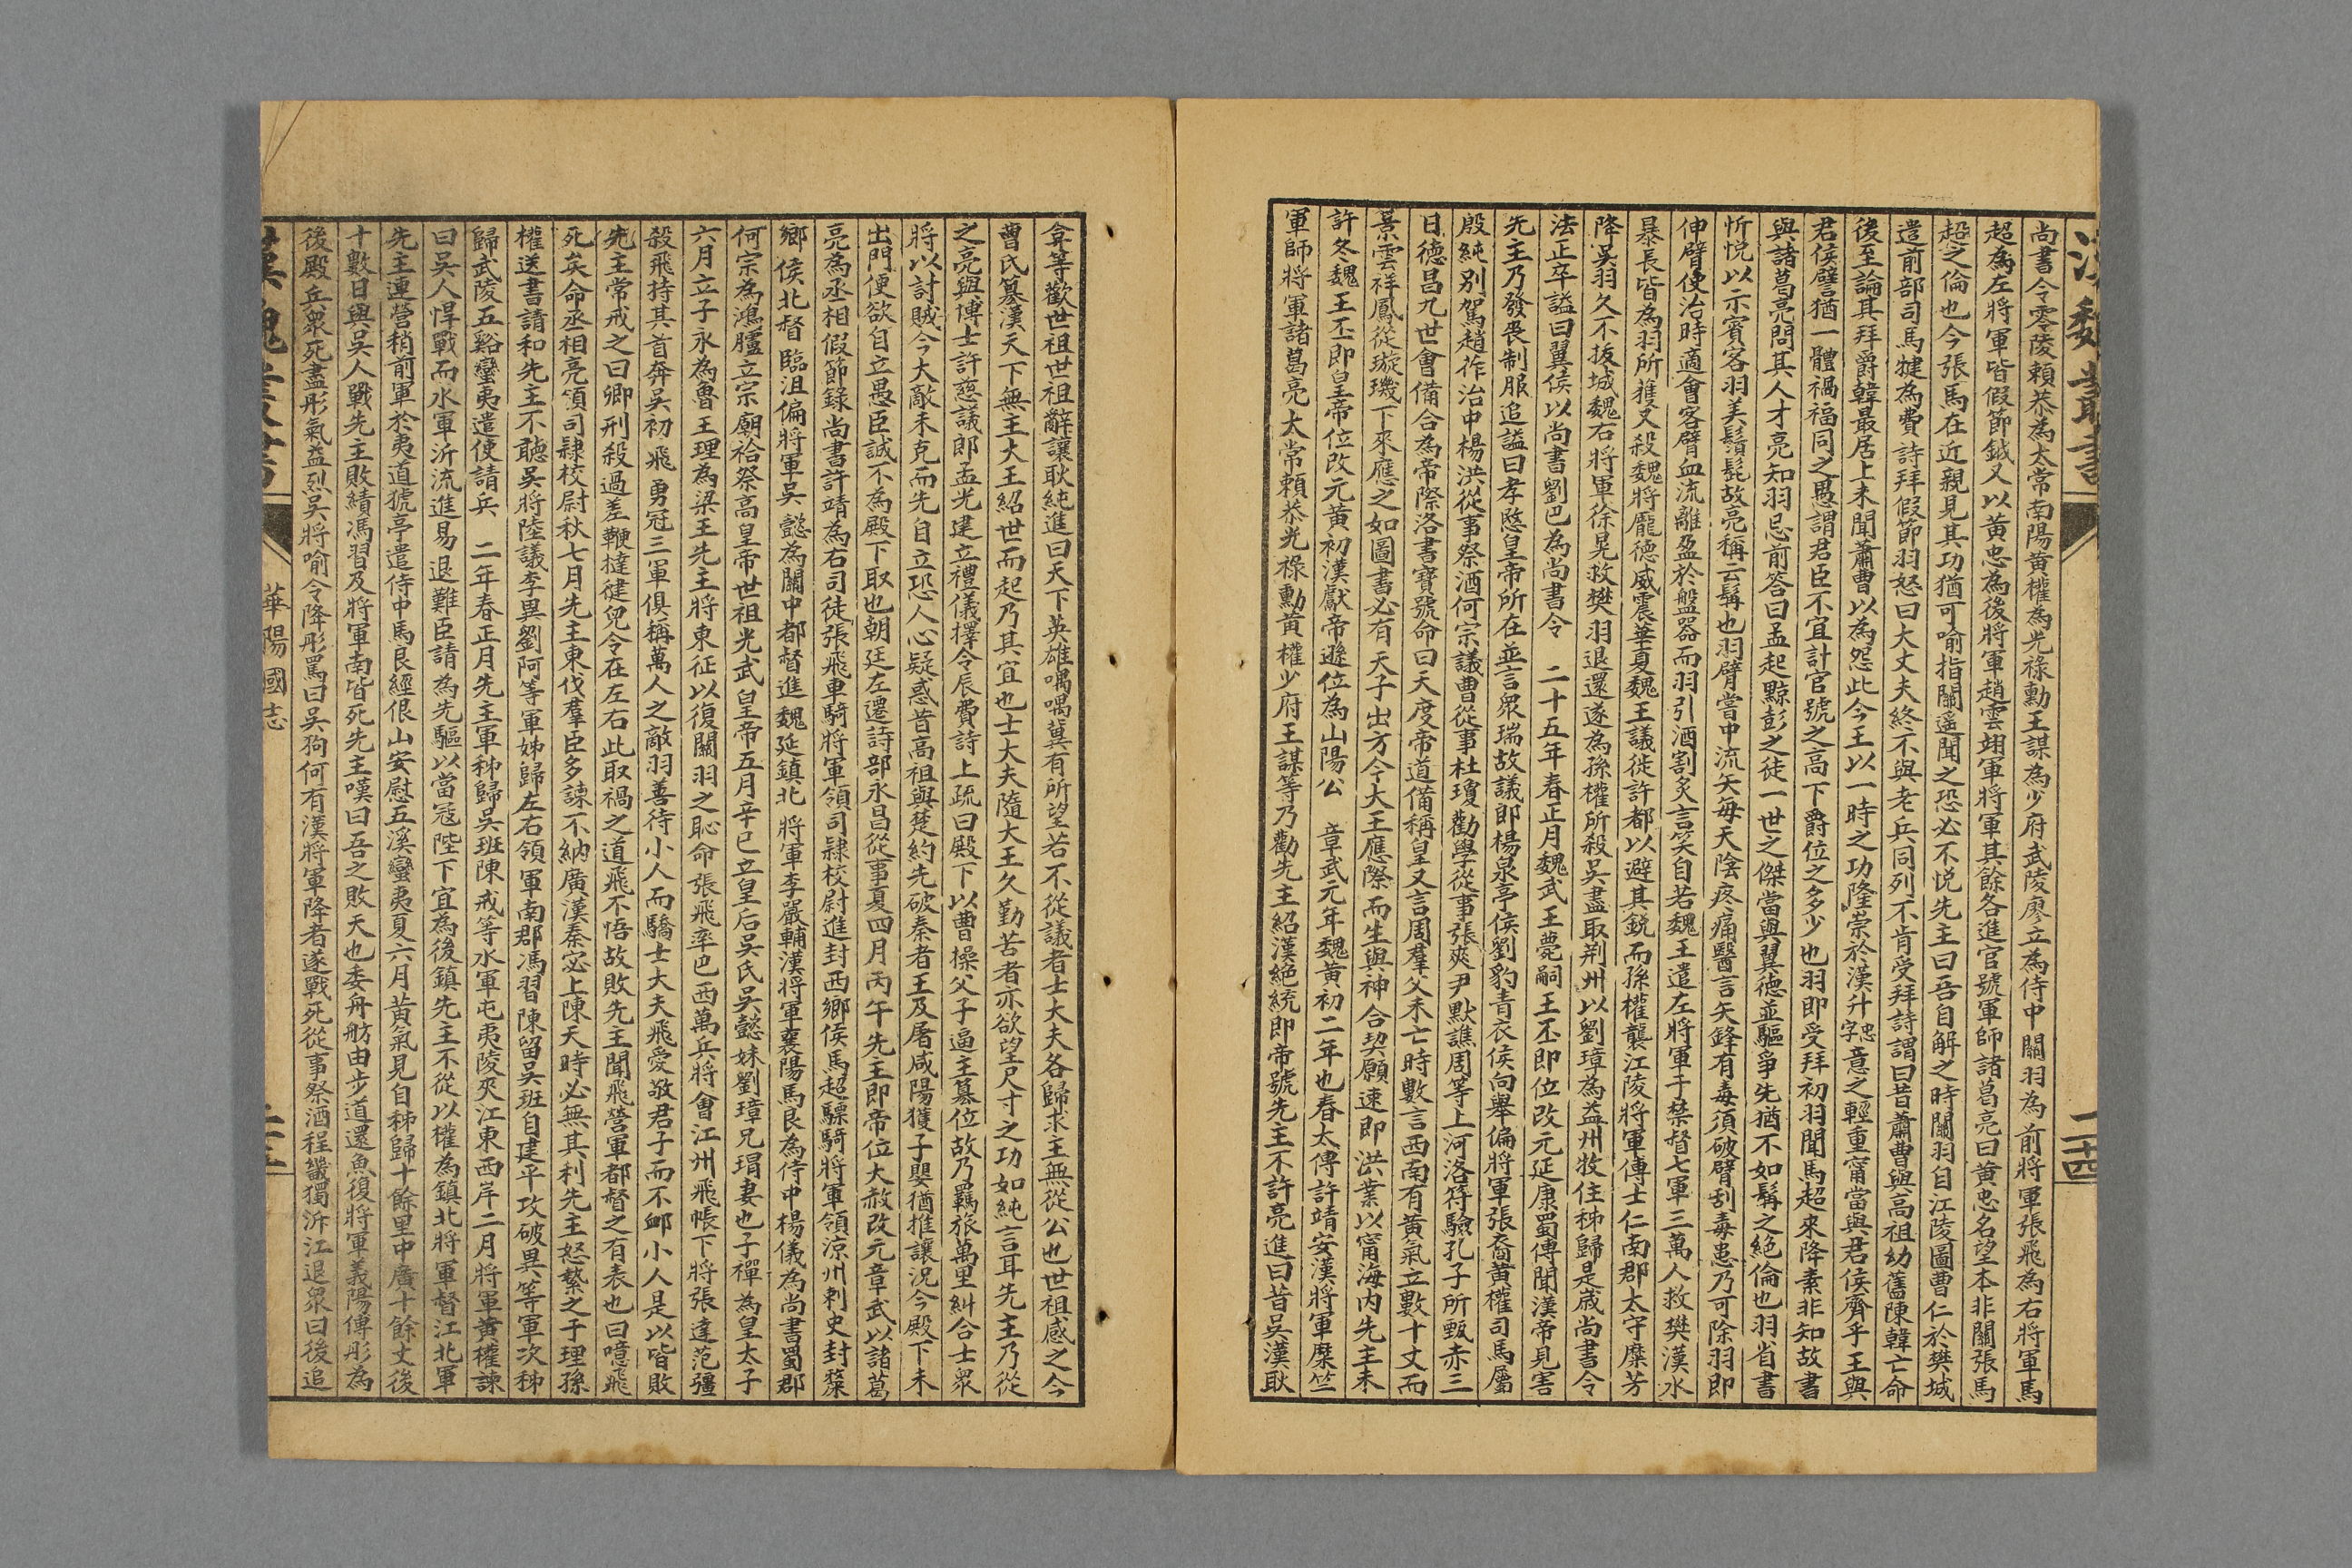 漢魏叢書
二十四
尚書令零陵賴恭為太常南陽黃權為光祿勳王謀為少府武陵廖立為侍中關羽為前將軍張飛為右將軍馬
超為左將軍皆假節鉞又以黃忠為後將軍趙雲翊軍將軍其餘各進官號軍師諸葛亮曰黃忠名望本非關張馬
超之倫也今張馬在近親見其功猶可喻指關遥聞之恐必不悦先主曰吾自解之時關羽自江陵圖曹仁於樊城
遣前部司馬犍為費詩拜假節羽怒曰大丈夫終不與老兵同列不肯受拜詩謂曰昔蕭曹與高祖幼舊陳韓亡命
後至論其拜爵韓最居上未聞蕭曹以為怨此今王以一時之功隆崇於漢升字忠意之輕重甯當與君侯齊乎王與
君侯譬猶一體禍福同之愚謂君臣不宜計官號之高下爵位之多少也羽即受拜初羽聞馬超來降素非知故書
與諸葛亮問其人才亮知羽忌前答曰孟起黥彭之徒一世之傑當與翼德並驅爭先猶不如髯之絕倫也羽省書
忻悦以示賓客羽美鬚髭故亮稱云髯也羽臂嘗中流矢每天陰疼痛醫言矢鋒有毒須破臂刮毒患乃可除羽即
伸臂使治時適會客臂血流離盈於盤器而羽引酒割炙言笑自若魏王遣左將軍于禁督七軍三萬人救樊漢水
暴長皆為羽所獲又殺魏將龐德威震華夏魏王議徙許都以避其銳而孫權襲江陵將軍傅士仁南郡太守糜芳
降吳羽久不拔城魏右將軍徐晃救樊羽退還遂為孫權所殺吳盡取荆州以劉璋為益州牧住秭歸是歲尚書令
法正卒謚曰翼侯以尚書劉巴為尚書令　二十五年春正月魏武王薨嗣王丕即位改元延康蜀傳聞漢帝見害
先主乃發喪制服追謚曰孝愍皇帝所在並言眾瑞故議郎楊泉亭侯劉豹青衣侯向舉偏將軍張裔黃權司馬屬
殷純別駕趙莋治中楊洪從事祭酒何宗議曹從事杜瓊勸學從事張爽尹默譙周等上河洛符驗孔子所甄赤三
日德昌九世會備合為帝際洛書寶號命曰天度帝道備稱皇又言周羣父未亡時數言西南有黃氣立數十丈而
景雲祥鳳從璇璣下來應之如圖書必有天子出方今大王應際而生與神合契願速即洪業以甯海內先主未
許冬魏王丕即皇帝位改元黃初漢獻帝遜位為山陽公　章武元年魏黃初二年也春太傅許靖安漢將軍糜竺
軍師將軍諸葛亮太常賴恭光祿勳黃權少府王謀等乃勸先主紹漢絕統即帝號先主不許亮進曰昔吳漢耿
弇等歡世祖世祖辭讓耿純進曰天下英雄喁喁冀有所望若不從議者士大夫各歸求主無從公也世祖感之今
曹氏篡漢天下無主大王紹世而起乃其宜也士大夫隨大王久勤苦者亦欲望尺寸之功如純言耳先主乃從
之亮與博士許慈議郎孟光建立禮儀擇令辰費詩上疏曰殿下以曹操父子逼主篡位故乃羈旅萬里糾合士眾
將以討賊今大敵未克而先自立恐人心疑惑昔高祖與楚約先破秦者王及屠咸陽獲子嬰猶推讓況今殿下未
出門便欲自立愚臣誠不為殿下取也朝廷左遷詩部永昌從事夏四月丙午先主即帝位大赦改元章武以諸葛
亮為丞相假節錄尚書許靖為右司徒張飛車騎將軍領司隸校尉進封西鄉侯馬超驃騎將軍領涼州刺史封斄
鄉侯北督臨沮偏將軍吳懿為關中都督進魏延鎮北將軍李嚴輔漢將軍襄陽馬良為侍中楊儀為尚書蜀郡
何宗為鴻臚立宗廟祫祭高皇帝世祖光武皇帝五月辛巳立皇后吳氏吳懿妹劉璋兄瑁妻也子禪為皇太子
六月立子永為魯王理為梁王先主將東征以復關羽之恥命張飛率巴西萬兵將會江州飛帳下將張達范彊
殺飛持其首奔吳初飛勇冠三軍俱稱萬人之敵羽善待小人而驕士大夫飛愛敬君子而不卹小人是以皆敗
先主常戒之曰卿刑殺過差鞭撻健兒令在左右此取禍之道飛不悟故敗先主聞飛營軍都督之有表也曰噫飛
死矣命丞相亮領司隸校尉秋七月先主東伐羣臣多諫不納廣漢秦宓上陳天時必無其利先主怒縶之于理孫
權送書請和先主不聽吳將陸議李異劉阿等軍姊歸左右領軍南郡馮習陳留吳班自建平攻破異等軍次秭
歸武陵五谿蠻夷遣使請兵　二年春正月先主軍秭歸吳班陳戒等水軍屯夷陵夾江東西岸二月將軍黃權諫
曰吳人悍戰而水軍沂流進易退難臣請為先驅以當寇陛下宜為後鎮先主不從以權為鎮北將軍督江北軍
先主連營稍前軍於夷道猇亭遣侍中馬良經佷山安慰五溪蠻夷夏六月黃氣見自秭歸十餘里中廣十餘丈後
十數日與吳人戰先主敗績馮習及將軍南皆死先主嘆曰吾之敗天也委舟舫由步道還魚復將軍義陽傅彤為
後殿兵眾死盡彤氣益烈吳將喻令降彤罵曰吳狗何有漢將軍降者遂戰死從事祭酒程畿獨泝江退眾曰後追
漢魏叢書
華陽國志
二十五